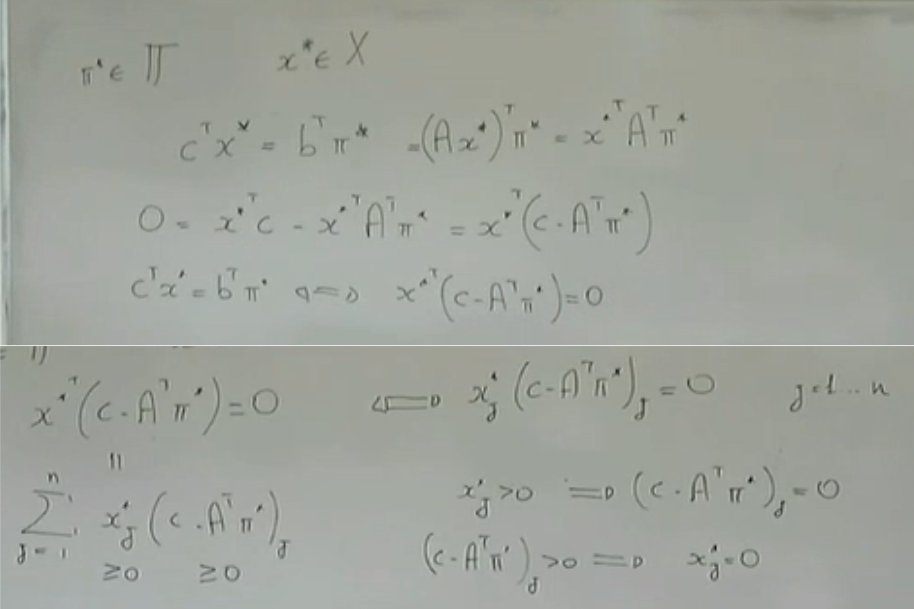 π* ∈ Π x* ∈ X
cᵀx* = bᵀπ* = (Ax*)ᵀπ* = x*ᵀAᵀπ*
0 = x*ᵀc - x*ᵀAᵀπ* = x*ᵀ(c - Aᵀπ*)
cᵀx* = bᵀπ* ⟺ x*ᵀ(c - Aᵀπ*) = 0
x*ᵀ(c - Aᵀπ*) = 0 ⟺ x*ⱼ(c - Aᵀπ*)ⱼ = 0 j = 1 .. n
||
n
∑ x*ⱼ(c - Aᵀπ*)ⱼ x*ⱼ > 0 ⟹ (c - Aᵀπ*)ⱼ = 0
j = 1
≥0 ≥0 (c - Aᵀπ*)ⱼ > 0 ⟹ x*ⱼ = 0